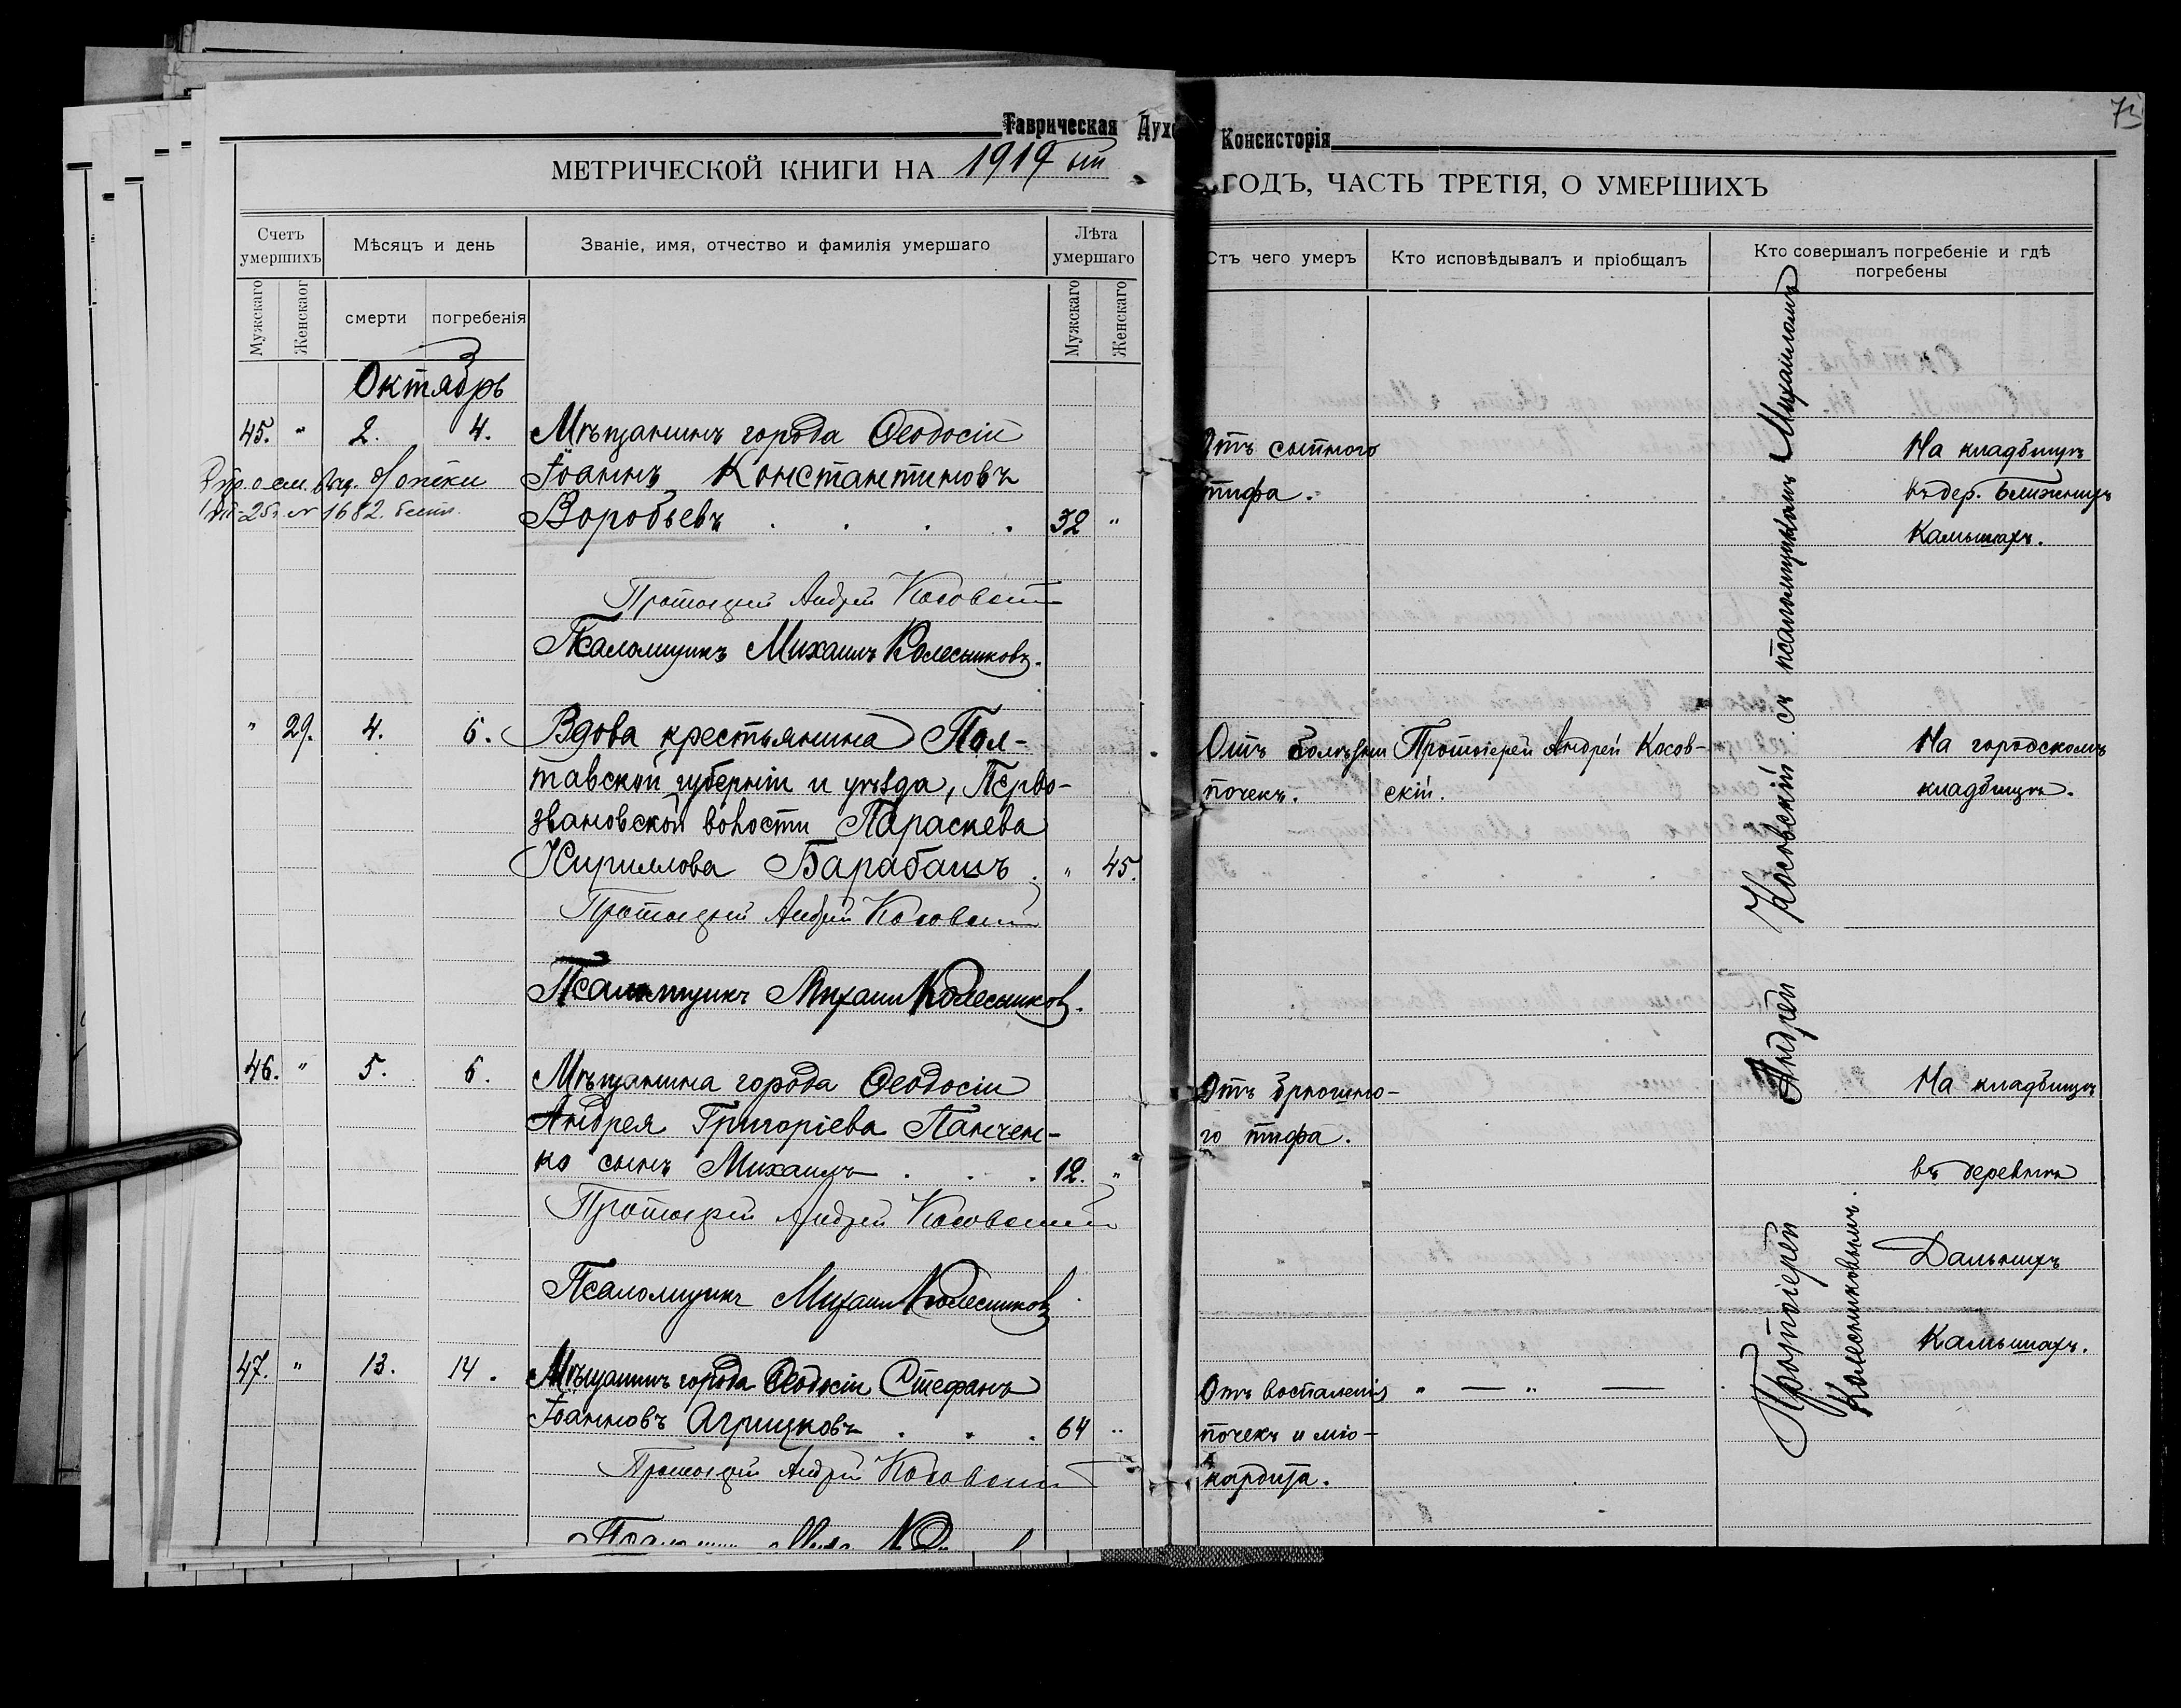 73
Таврическая Духо Консисторія
МЕТРИЧЕСКОЙ КНИГИ НА 1919 ый ГОДЪ, ЧАСТЬ ТРЕТІЯ, О УМЕРШИХЪ
Счетъ умершихъ
Мѣсяцъ и день
Званіе, имя, отчество и фамилія умершаго
Лѣта умершаго
Отъ чего умеръ
Кто исповѣдывалъ и пріобщалъ
Кто совершалъ погребеніе и гдѣ погребены
Мужскаго
Женскаог
смерти
погребенія
Мужскаго
Женскаго
Октябрь
45. " 2. 4. Мѣщанинъ города Ѳеодосіи
Іоаннъ Константиновъ
Воробьевъ . . . . 32 "
1682.
Отъ сыпного
тифа.
На кладбищѣ
въ дер. Ближнихъ
Камышахъ.
Протоіерей Андрей Косовскій
Псаломщикъ Михаилъ Колесниковъ.
" 29. 4. 6. Вдова крестьянина Пол-
тавской губерніи и уѣзда, Перво-
звановской волости Параскева
Кириллова Барабашъ . " 45.
Отъ болѣзни
почекъ.
Протоіерей Андрей Косов-
скій.
На городскомъ
кладбищѣ.
Протоіерей Андрей Косовскій
Псаломщикъ Михаил Колесников.
46. " 5. 6. Мѣщанина города Ѳеодосіи
Андрея Григоріева Панчен-
ко сынъ Михаилъ . . . 12. "
Отъ брюшно-
го тифа.
На кладбищѣ
въ деревнѣ
Дальнихъ
Камышахъ.
Протоіерей Андрей Косовский
Псаломщикъ Михаил Колесников
47. " 13. 14. Мѣщанинъ города Ѳеодосіи Стефанъ
Іоанновъ Агрицковъ . . . 64 "
Отъ воспаленія " — " —
почекъ и міо-
кардита.
Протоіерей Андрей Косовский
Протоіерей Андрей Косовскій съ псаломщикомъ Михаиломъ
Колесниковымъ.